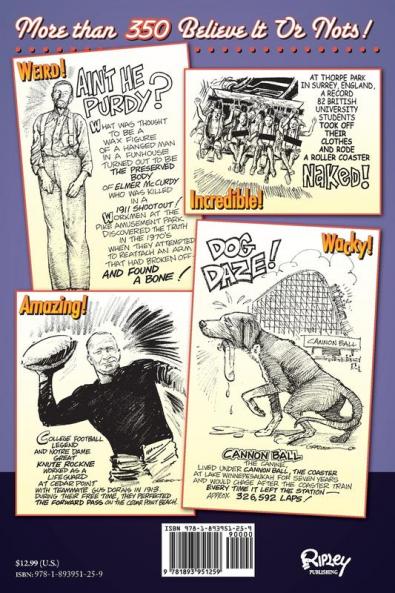 More than 350 Believe It Or Nots!
WEIRD!
AIN'T HE
PURDY?
WHAT WAS THOUGHT
TO BE A
WAX FIGURE
OF A HANGED MAN
IN A FUNHOUSE
TURNED OUT TO BE
THE PRESERVED
BODY
OF ELMER McCURDY
WHO WAS KILLED
IN A
1911 SHOOTOUT!
WORKMEN AT THE
PIKE AMUSEMENT PARK
DISCOVERED THE TRUTH
IN THE 1970'S
WHEN THEY ATTEMPTED
TO REATTACH AN ARM
THAT HAD BROKEN OFF
AND FOUND
A BONE!
AT THORPE PARK
IN SURREY, ENGLAND,
A RECORD
82 BRITISH
UNIVERSITY
STUDENTS
TOOK OFF
THEIR
CLOTHES
AND RODE
A ROLLER COASTER
NAKED!
Incredible!
Amazing!
COLLEGE FOOTBALL
LEGEND
AND NOTRE DAME
GREAT
KNUTE ROCKNE
WORKED AS A
LIFEGUARD
AT CEDAR POINT
WITH TEAMMATE GUS DORAIS IN 1913.
DURING THEIR FREE TIME, THEY PERFECTED
THE FORWARD PASS ON THE CEDAR POINT BEACH.
Wacky!
DOG
DAZE!
CANNON BALL
CANNON BALL
THE CANINE
LIVED UNDER CANNON BALL, THE COASTER
AT LAKE WINNEPESAUKAH FOR SEVEN YEARS
AND WOULD CHASE AFTER THE COASTER TRAIN
EVERY TIME IT LEFT THE STATION —
APPROX. 326,592 LAPS!
ISBN 978-1-893951-25-9
90000
9 781893 951259
$12.99 (U.S.)
ISBN: 978-1-893951-25-9
Ripley
PUBLISHING